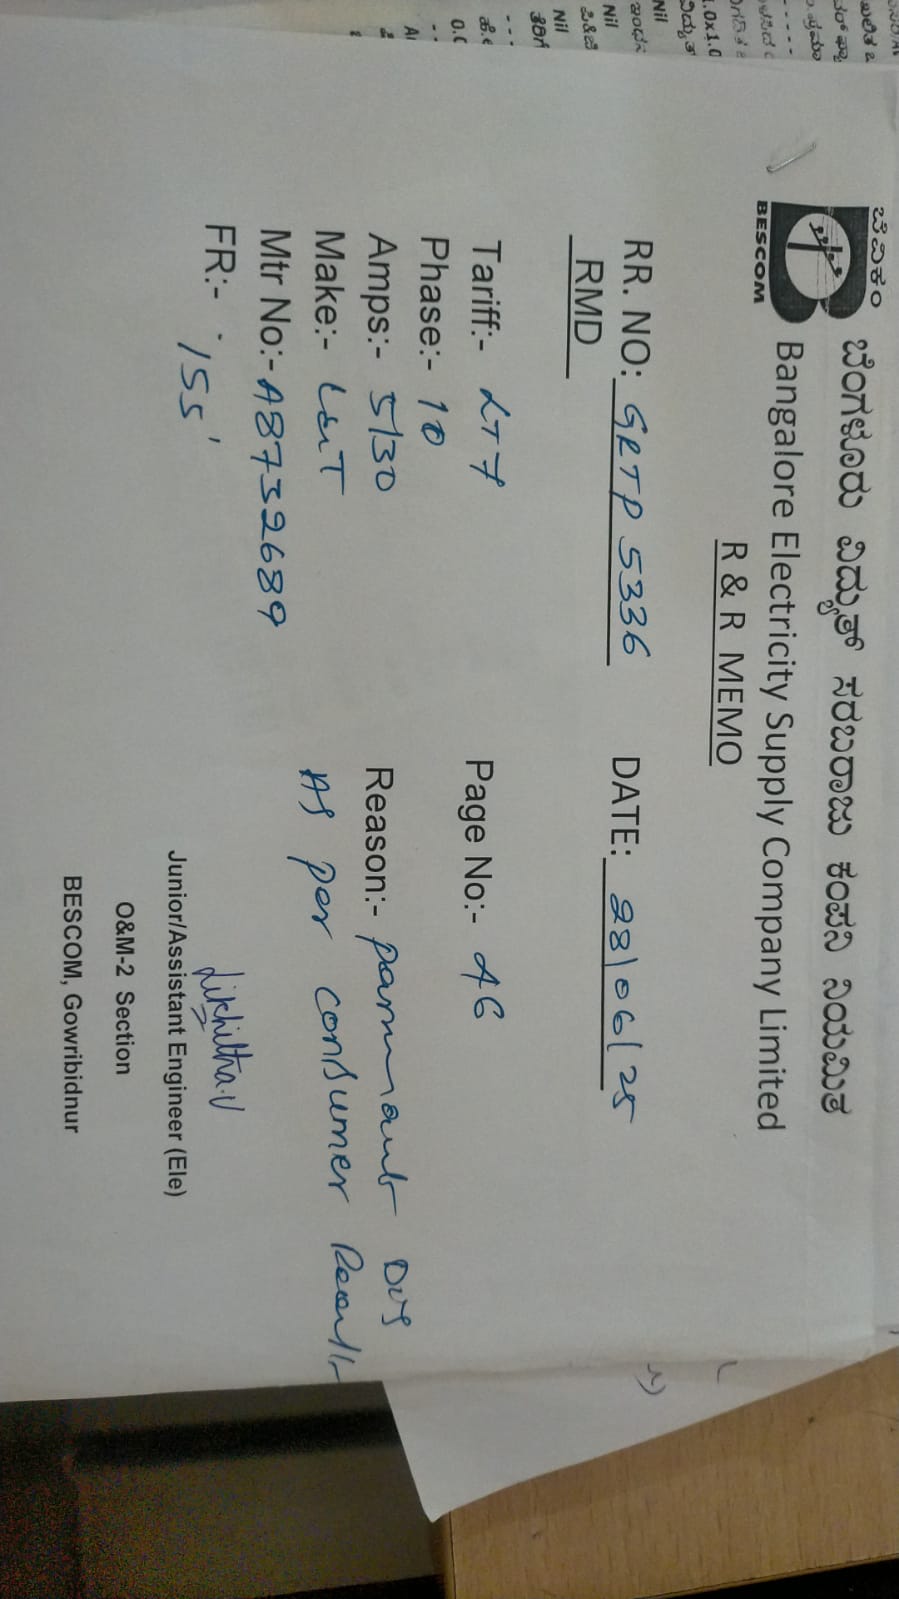 ಬೆವಿಕಂ
BESCOM
ಬೆಂಗಳೂರು ವಿದ್ಯುತ್ ಸರಬರಾಜು ಕಂಪನಿ ನಿಯಮಿತ
Bangalore Electricity Supply Company Limited
R & R MEMO
RR. NO: GRTP 5336 DATE: 28/06/25
RMD
Tariff:- LT7 Page No:- 46
Phase:- 1Ø
Amps:- 5/30 Reason:- parmnant Dis
Make:- L&T As per consumer
Mtr No:- A8732689
FR:- '155'
Likhitha.V
Junior/Assistant Engineer (Ele)
O&M-2 Section
BESCOM, Gowribidnur
Nil
Nil
Nil
1.0x1.0